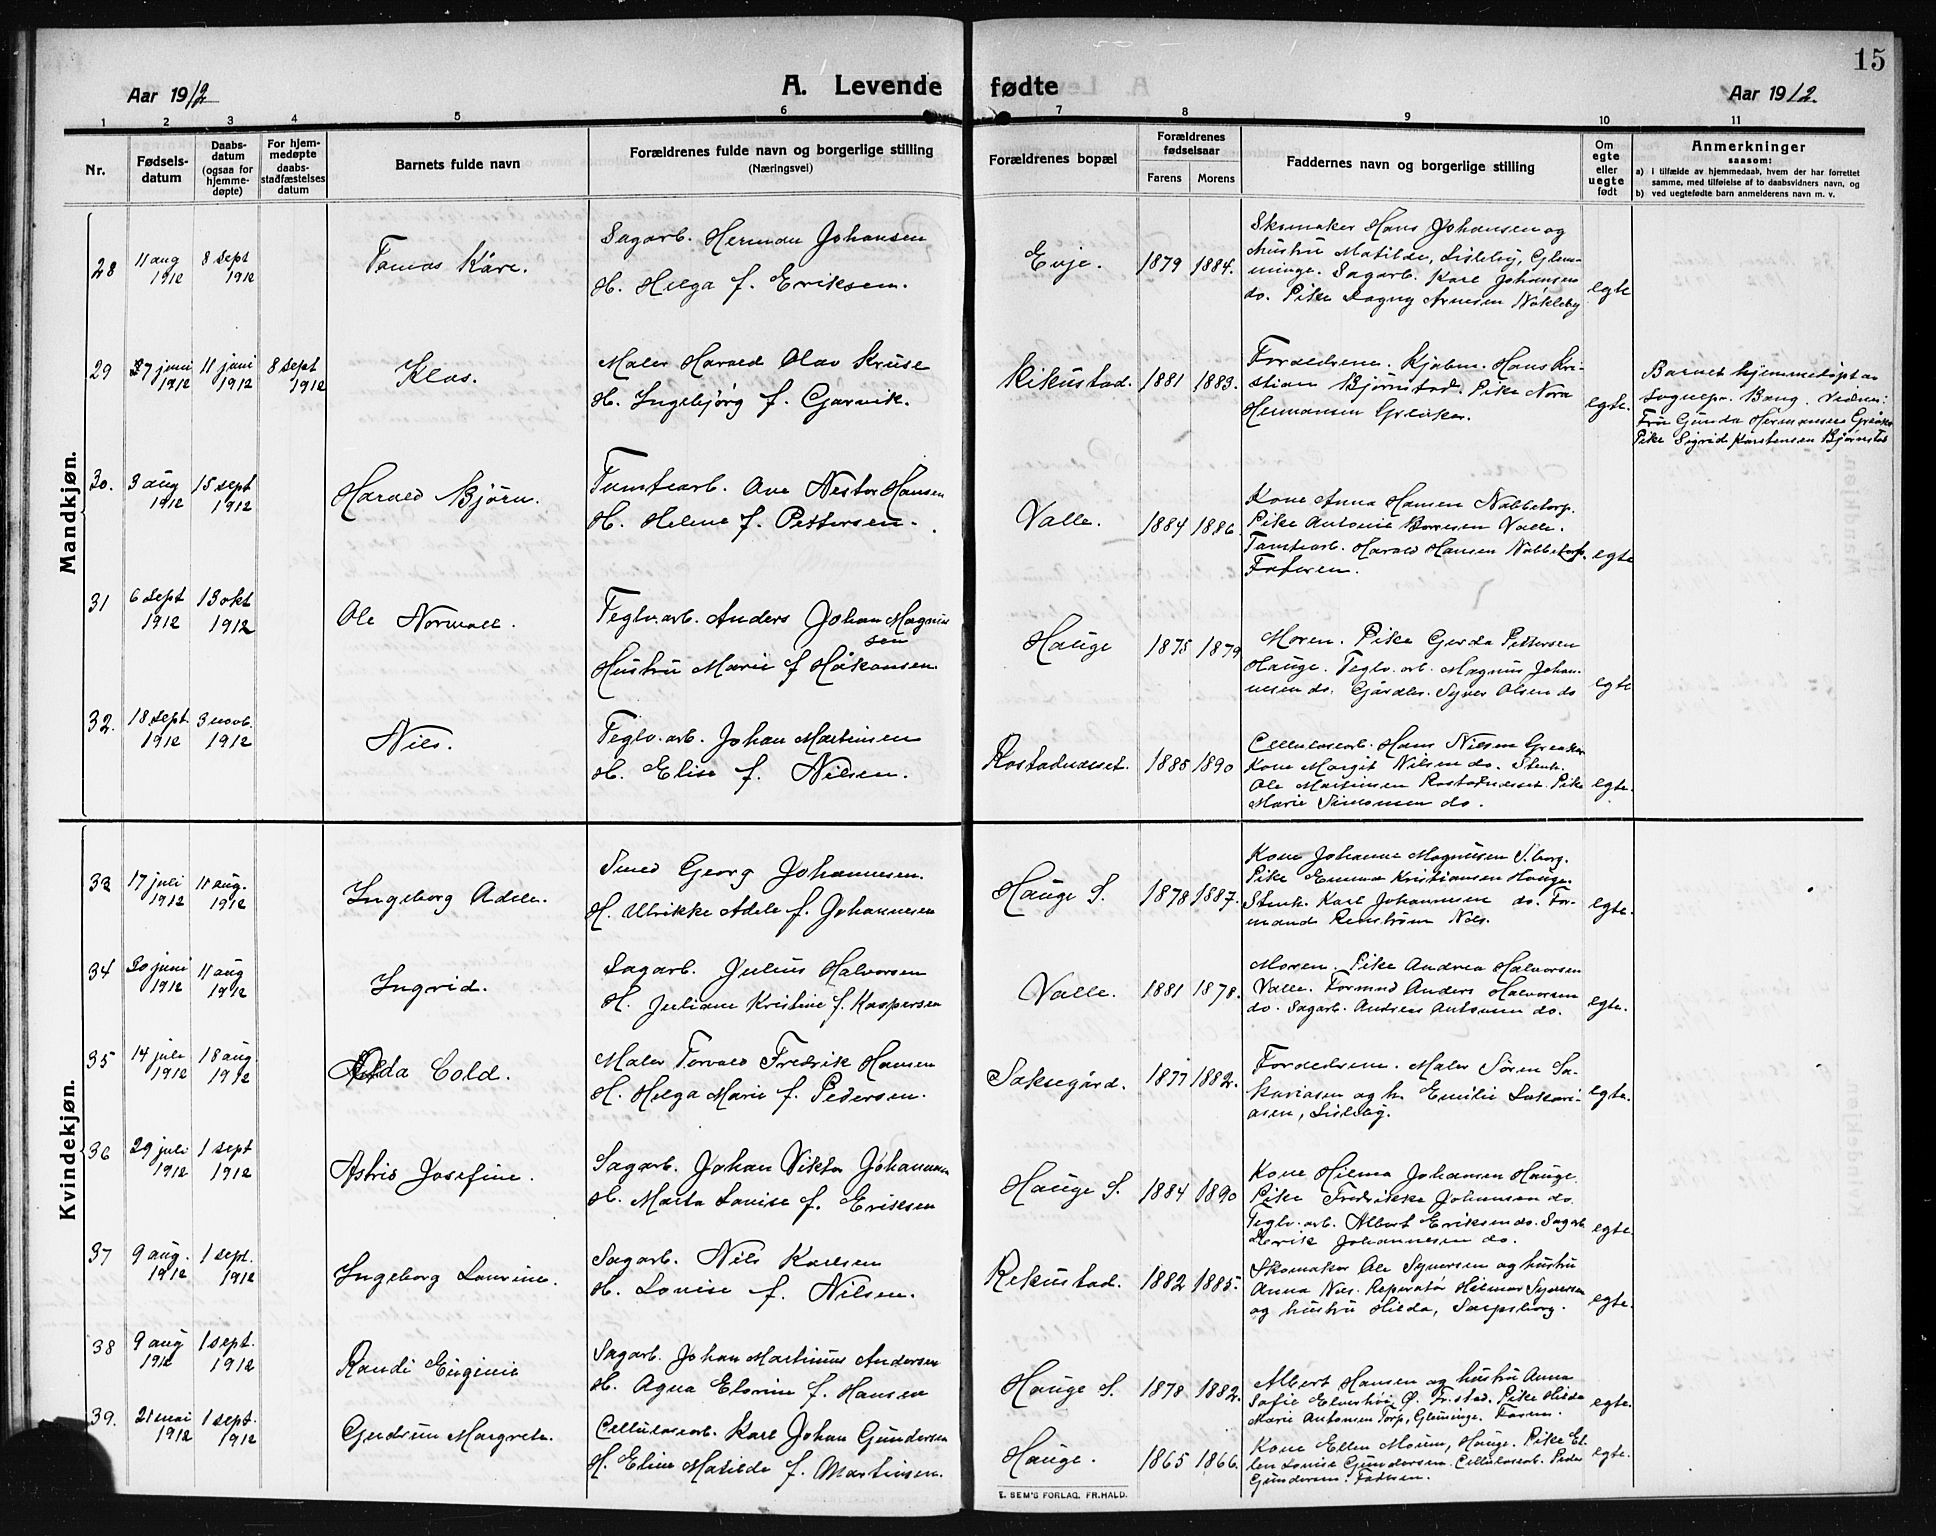 15
Aar 1912
A. Levende fødte
Aar 1912.
1 2 3 4 5 6 7 8 9 10 11
Nr.
Fødsels-
datum
Daabs-
datum
(ogsaa for
hjemme-
døpte)
For hjem-
medøpte
daabs-
stadfæstelses
datum
Barnets fulde navn
Forældrenes fulde navn og borgerlige stilling
(Næringsvei)
Forældrenes bopæl
Forældrenes
fødselsaar
Farens Morens
Faddernes navn og borgerlige stilling
Om
egte
eller
uegte
født
Anmerkninger
saasom:
a) i tilfælde av hjemmedaab, hvem der har forrettet
samme, med tilføielse af to daabsvidners navn, og
b) ved uegtefødte barn anmelderens navn m. v.
Mandkjøn.
28
11 aug
1912
8 sept
1912
Tomas Kåre.
Sagarb. Herman Johansen
H. Helga f. Eriksen.
Evje.
1879 1884.
Skomaker Hans Johansen og
hustru Matilde, Lisleby, Glem-
minge. Sagarb. Karl Johansen
do. Pike Dagny Arnesen Nokleby
egte
29
27 juni
1912
11 juni
1912
8 sept
1912
Klas.
Maler Harald Olav Kruse
H. Ingebjørg f. Gjarvik.
Rikustad.
1881 1883.
Foreldrene. Kjøbm. Hans Kri-
stian Bjørnstad. Pike Nora
Hermansen Greaker.
egte.
Barnet hjemmedøpt av
sognepr. Bang. Vidner:
Fru Gunda Hermansen Greåker
Pike Sigrid Karstensen Bjørnstad
30.
3 aug
1912
15 sept
1912
Harald Bjørn.
Tomtearb. Ave Nestor Hansen
H. Helene f. Pettersen.
Valle.
1884 1886.
Kone Anna Hansen Nabbetorp.
Pike Antonie Borresen Valle.
Tomtearb. Harald Hansen Nabbetorp.
Faderen.
egte
31
6 sept
1912
13 okt
1912
Ole Normall.
Teglv.arb. Anders Johan Magnus
sen
Hustru Marie f Håkansen.
Hauge
1875 1879
Moren. Pike Gerda Pettersen
Hauge. Teglv.arb. Magnus Johan-
nesen do. Gårdbr. Syver Olsen do
egte
32.
18 sept.
1912
3 novb.
1912
Nils.
Teglv.arb. Johan Martinsen
H. Elise f. Nilsen.
Rostadneset.
1885 1890
Cellulosearb. Hans Nilsen Greaker
Kone Margit Nilsen do. Stenh.
Ole Martinsen Rostadneset. Pike
Marie Simonsen do.
egte.
Kvindekjøn.
33
17 juli
1912
11 aug.
1912
Ingeborg Adele.
Smed Georg Johannesen.
H. Ulrikke Adele f. Johannesen
Hauge S.
1878 1887.
Kone Johanne Magnusen S.borg.
Pike Emma Kristiansen Hauge.
Stenh. Karl Johannesen do. For-
mand Renstrøm Nes.
egte.
34
30 juni
1912
11 aug
1912
Ingrid.
Sagarb. Julius Halvorsen
H. Juliane Kristine f. Kaspersen
Valle.
1881 1878.
Moren. Pike Andrea Halvorsen
Valle. Formnd Anders Halvorsen
do. Sagarb. Andreas Antonsen do.
egte.
35
14 juli
1912
18 aug.
1912
Alda Cold.
Maler Torvald Fredrik Hansen
H. Helga Marie f. Pedersen.
Saksegård.
1877 1882.
Foreldrene. Maler Søren Sa-
kariasen og h. Emilie Sakari-
asen, Lisleby.
egte.
36
29 juli
1912
1 sept
1912
Astrid Josefine.
Sagarb. Johan Viktor Johannesen
H. Marta Lovise f. Eriksen
Hauge S.
1884 1890
Kone Hilma Johansen Hauge.
Pike Fredrikke Johansen do.
Teglv.arb. Albert Eriksen do. Sagarb.
Henrik Johannesen do.
egte.
37
9 aug.
1912
1 sept.
1912
Ingeborg Laurine.
Sagarb. Nils Karlsen
H. Lovise f. Nilsen.
Rekustad.
1882 1885.
Skomaker Ole Syversen og hustru
Anna Nes. Reparatør Hilmar Syversen
og hustru Hilda, Sarpsborg.
egte.
38
9 aug
1912
1 sept.
1912
Randi Eugenie
Sagarb. Johan Martinius Andersen
H. Agna Elorine f. Hansen
Hauge S.
1878 1882.
Albert Hansen og hustru Anna
Sofie Elvestroi Ø. Fr.stad. Pike Hilda
Marie Antonsen Torp, Glemminge. Faren.
egte.
39.
21 mai
1912
1 sept.
1912
Gudrun Margrete.
Cellulosearb. Karl Johan Gundersen
H. Eline Matilde f. Martinsen.
Hauge.
1865 1866.
Kone Ellen Moum, Hauge. Pike El-
len Lovise Gundersen. Cellulosearb. Peder
Gundersen. Faderen.
egte.
E. SEM'S FORLAG, FR.HALD.